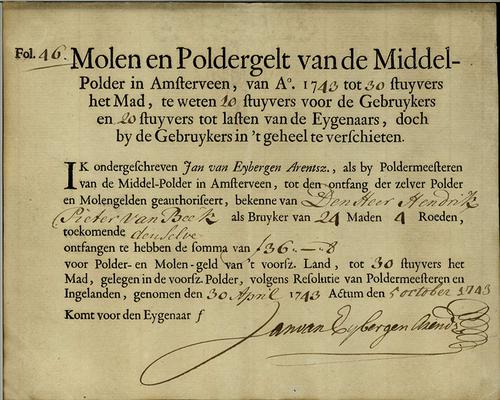 Fol. 46. Molen en Poldergelt van de Middel-
Polder in Amſterveen, van Aº. 1743 tot 30 ſtuyvers
het Mad, te weten 10 ſtuyvers voor de Gebruykers
en 20 ſtuyvers tot laſten van de Eygenaars, doch
by de Gebruykers in 't geheel te verſchieten.
IK ondergeſchreven Jan van Eybergen Arentsz., als by Poldermeeſteren
van de Middel-Polder in Amſterveen, tot den ontfang der zelver Polder
en Molengelden geauthoriſeert, bekenne van Den Heer Hendrik
Pieter Van Beek als Bruyker van 24 Maden 4 Roeden,
toekomende denſelve
ontfangen te hebben de ſomma van ƒ36.—.8
voor Polder- en Molen-geld van 't voorſz. Land, tot 30 ſtuyvers het
Mad, gelegen in de voorſz. Polder, volgens Reſolutie van Poldermeeſteren en
Ingelanden, genomen den 30 April 1743 Actum den 5 october 1743
Komt voor den Eygenaar ƒ
Jan van Eybergen Arendsz